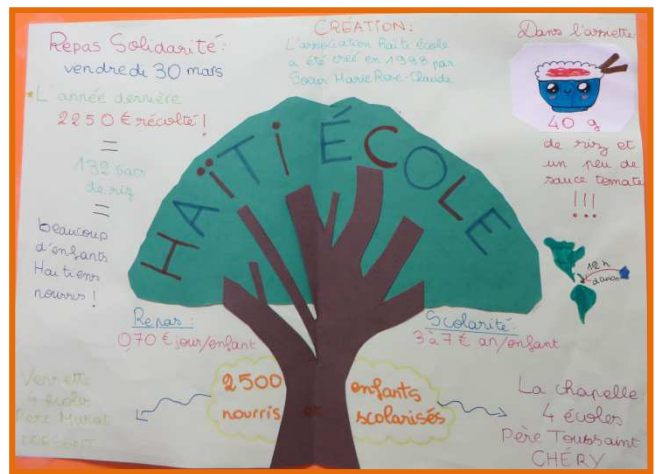 Repas Solidarité:
vendredi 30 mars
L'année dernière
2250 € récolté!
=
132 sacs
de riz
=
beaucoup
d'enfants
Haïtiens
nourris!
CRÉATION:
L'association Haïti École
a été créé en 1998 par
Soeur Marie Rose-Claude
Dans l'assiette
40 g
de riz et
un peu de
sauce tomate
!!!
HAÏTI ÉCOLE
12 h
d'avion
Repas:
0,70 € jour/enfant
Scolarité:
3 à 7 € an/enfant
2500 enfants
nourris et scolarisés
Verrette
4 écoles
Père Marat
La chapelle
4 écoles
Père Toussaint
CHÉRY